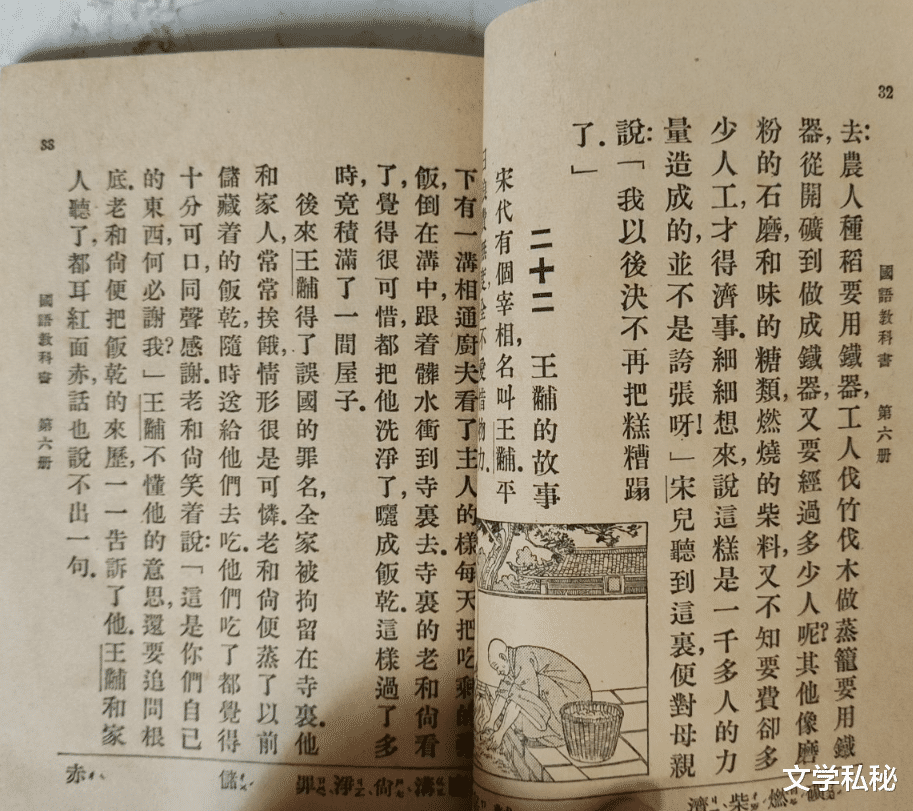 32
國語教科書 第六册
去:農人種稻要用鐵器,工人伐竹伐木做蒸籠要用鐵
器,從開礦到做成鐵器,又要經過多少人呢?其他像磨
粉的石磨,和味的糖類,燃燒的柴料,又不知要費卻多
少人工,才得濟事.細細想來,說這糕是一千多人的力
量造成的,並不是誇張呀!」宋兒聽到這裏,便對母親
說:「我以後決不再把糕糟蹋
了.」
二十二 王黼的故事
宋代有個宰相,名叫王黼.平
燃 柴 濟
33
下有一溝相通.廚夫看了主人的樣,每天把吃剩的
飯,倒在溝中,跟着髒水衝到寺裏去.寺裏的老和尙看
了,覺得很可惜,都把他洗淨了,曬成飯乾.這樣過了多
時,竟積滿了一間屋子.
後來王黼得了誤國的罪名,全家被拘留在寺裏.他
和家人,常常挨餓,情形很是可憐.老和尙便蒸了以前
儲藏着的飯乾,隨時送給他們去吃.他們吃了都覺得
十分可口,同聲感謝.老和尙笑着說:「這是你們自己
的東西,何必謝我?」王黼不懂他的意思,還要追問根
底.老和尙便把飯乾的來歷,一一告訴了他.王黼和家
人聽了,都耳紅面赤,話也說不出一句.
國語教科書 第六册
溝 尙 淨 罪 儲 赤
文学私秘